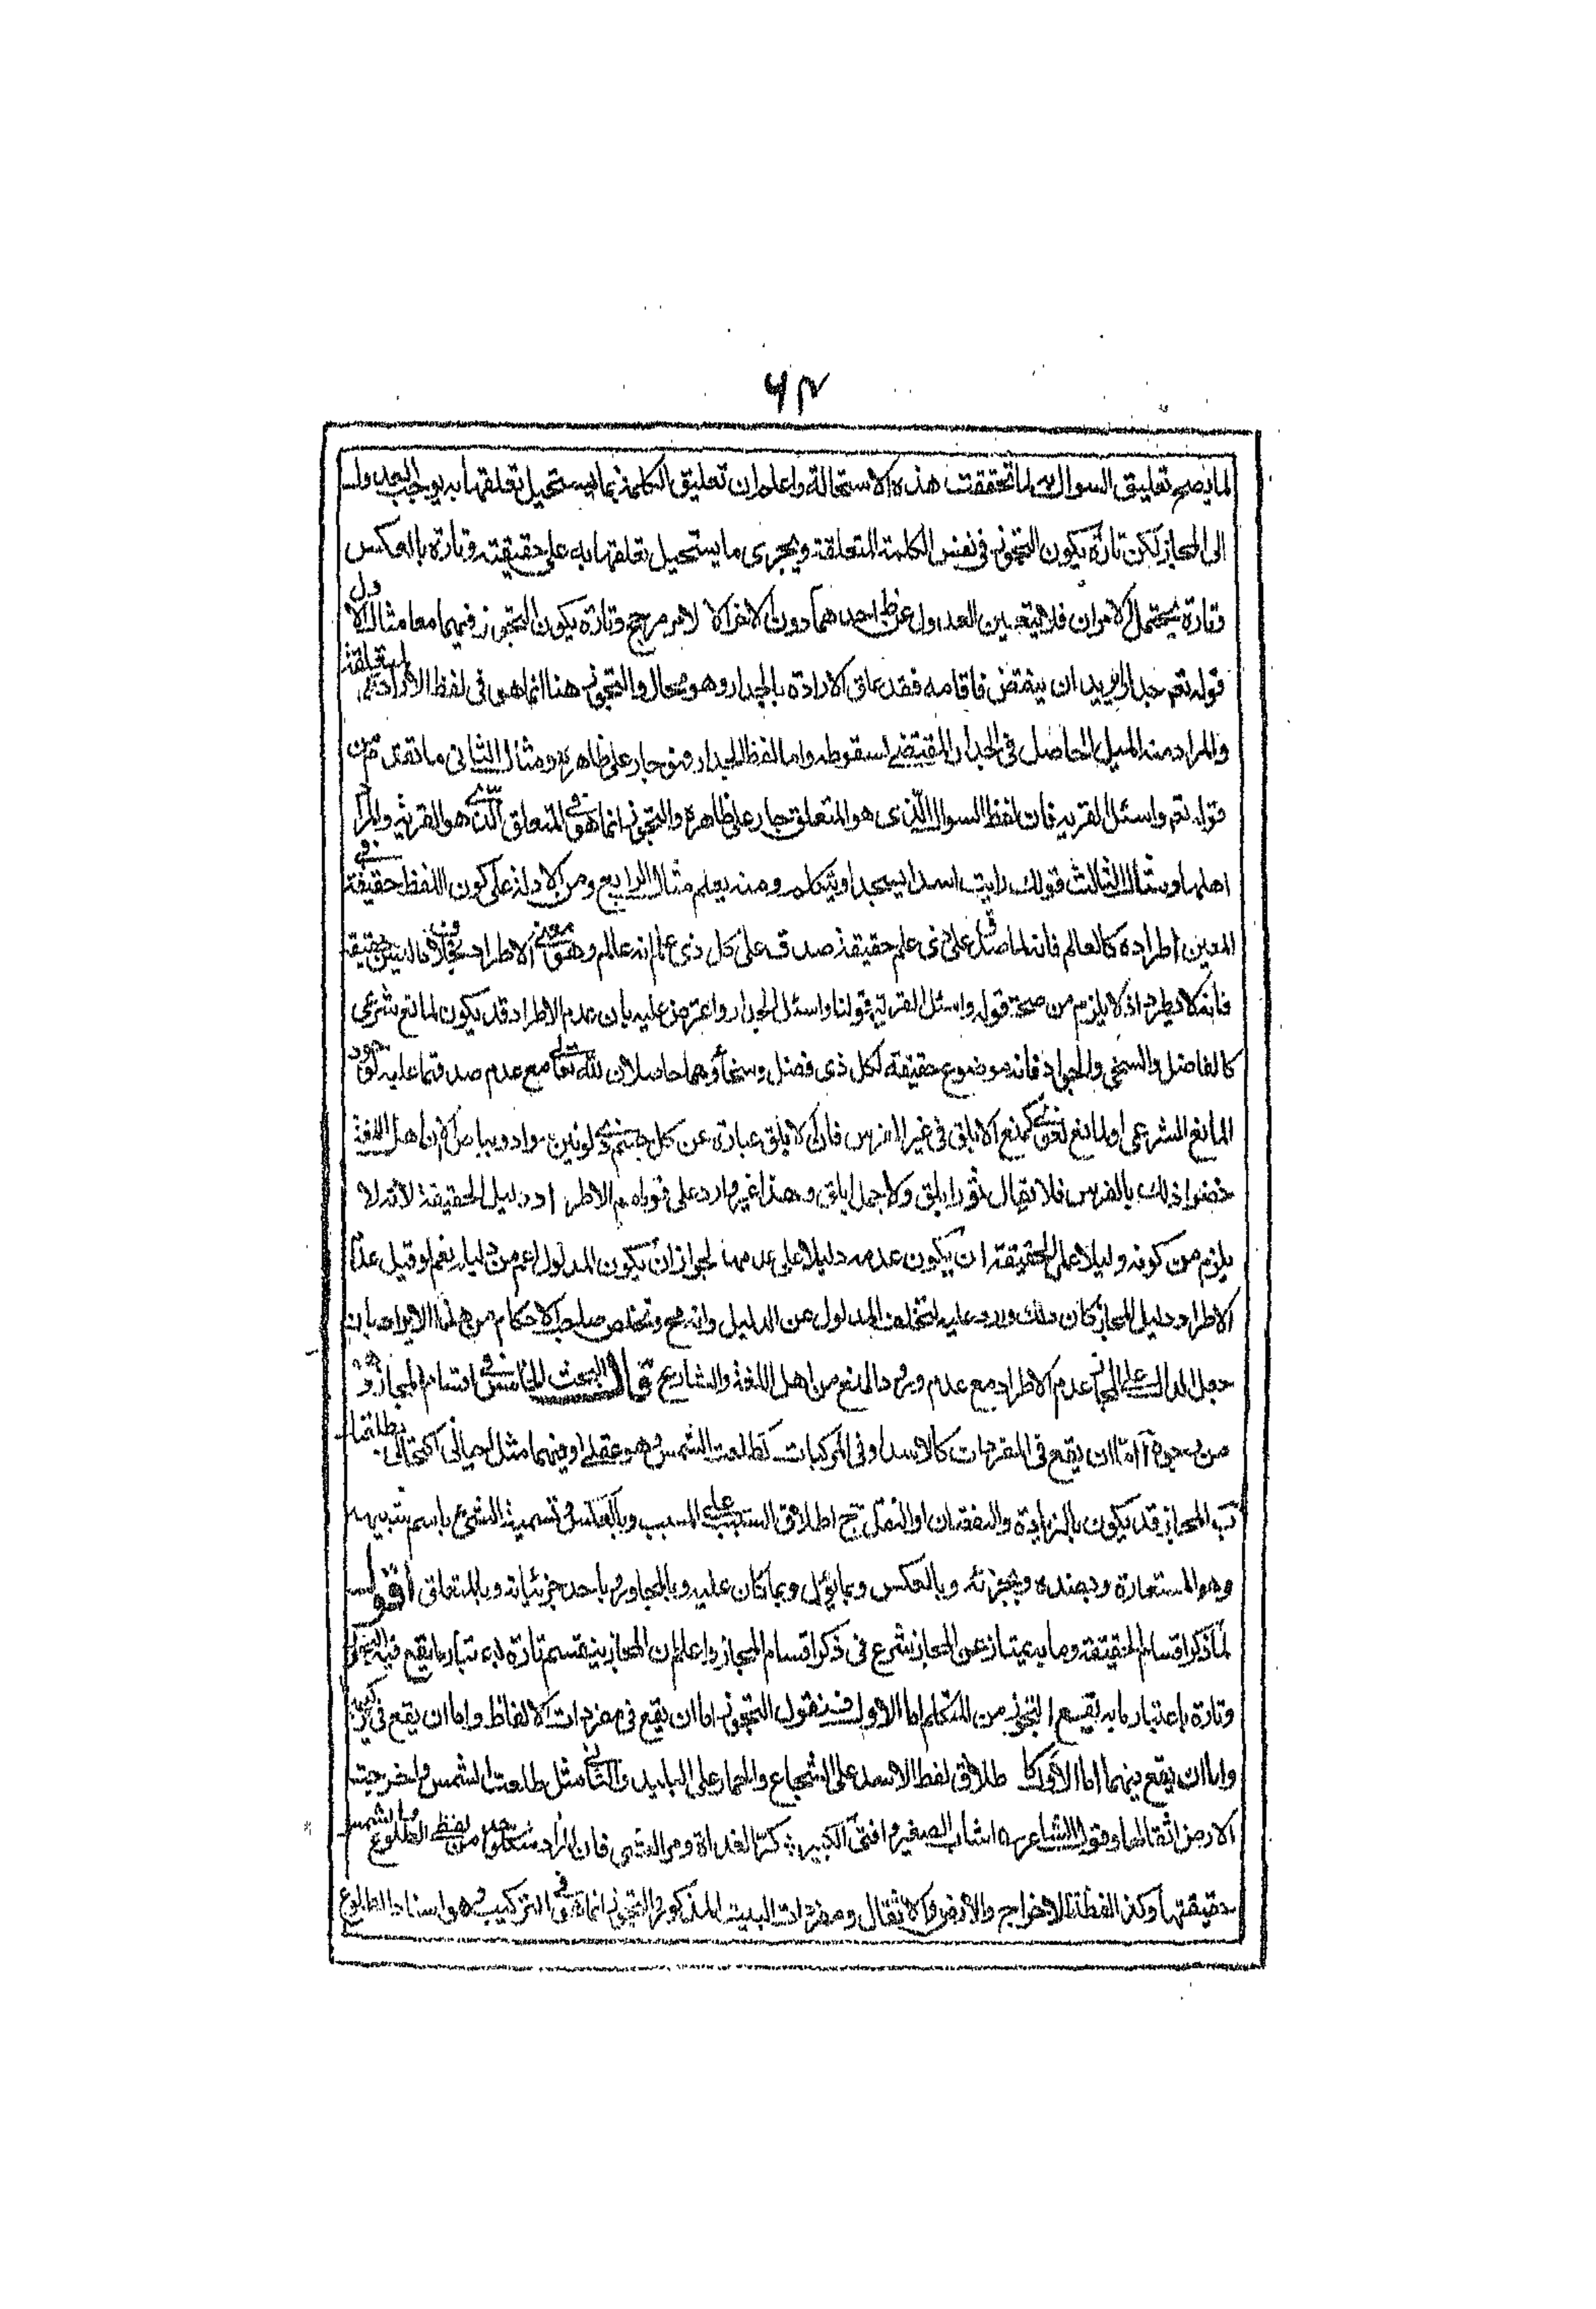 ٦٣
لما يصح تعليق السوال به لما تحققت هذه الاستحالة واعلم ان تعليق الكلمة بما يستحيل تعلقها به يوجب العدول
الى المجاز لكن تارة يكون التجوز فى نفس الكلمة المتعلقة ويجرى ما يستحيل تعلقها به على حقيقته وتارة بالعكس
وتارة يحتمل الامران فلا يتعين العدول عن احدهما دون الاخر الا لامر مرجح وتارة يكون التجوز فيهما معا مثال الاول
قوله تعم جدارا يريد ان ينقض فاقامه فقد علق الارادة بالجدار وهو محال والتجوز هنا انما هو فى لفظ الارادة
والمراد منه الميل الحاصل فى الجدار المقتضى لسقوطه واما لفظ الجدار فهو جار على ظاهره ومثال الثانى ما تقدم من
قوله تعم واسئل القرية فان لفظ السوال الذى هو المتعلق جار على ظاهره والتجوز انما هو فى المتعلق الذى هو القرية والمراد
اهلها ومثال الثالث قولك رايت اسدا يسجد او يتكلم ومنه يعلم مثال الرابع ومن الادلة على كون اللفظ حقيقة فى
المعين اطراده كالعالم فانه لما صدق على ذى علم حقيقة صدق على كل ذى علم انه عالم وهو معنى الاطراد بخلاف ما ليس حقيقة
فانه لا يطرد اذ لا يلزم من صحة قوله واسئل القرية قولنا واسئل الجدار واعترض عليه بان عدم الاطراد قد يكون لمانع شرعى
كالفاضل والسخى والجواد فانه موضوع حقيقة لكل ذى فضل وسخاء وهما حاصلان لله تعالى مع عدم صدقهما عليه لوجود
المانع الشرعى او لمانع لغوى كمنع الابلق فى غير الفرس فان الابلق عبارة عن كل جسم ذى لونين سواد وبياض الا ان اهل اللغة
خصوا ذلك بالفرس فلا يقال ثور ابلق ولا جمل ابلق وهذا غير وارد على قولهم الاطراد دليل الحقيقة لانه لا
يلزم من كونه دليلا على الحقيقة ان يكون عدمه دليلا على عدمها لجواز ان يكون المدلول اعم من دليله نعم لو قيل عدم
الاطراد دليل المجاز كان ذلك وردا عليه لتخلف المدلول عن الدليل وانه مح وتخلص صاحب الاحكام من هذا الايراد بان
جعل الدال على المجاز عدم الاطراد مع عدم ورود المنع من اهل اللغة والشارع قال البحث الخامس فى اقسام المجاز وهو
من وجوه آ اما ان يقع فى المفردات كالاسد او فى المركبات كطلعت الشمس وهو عقلى او فيهما مثل احيانى اكتحالى بطلعتك
ب المجاز قد يكون بالزيادة والنقصان او النقل ج اطلاق السبب على المسبب وبالعكس وتسمية الشىء باسم شبيهه
وهو المستعارة وبضده وبجزئه وبالعكس وبما يؤل وبما كان عليه وبالمجاور وباحد جزئياته وبالمتعلق اقول
لما ذكر اقسام الحقيقة وما به يمتاز عن المجاز شرع فى ذكر اقسام المجاز واعلم ان المجاز ينقسم تارة باعتبار ما يقع فيه التجوز
وتارة باعتبار ما به يقع التجوز من المتكلم اما الاول فنقول التجوز اما ان يقع فى مفردات الالفاظ واما ان يقع فى تركيبها
واما ان يقع فيهما اما الاول كاطلاق لفظ الاسد على الشجاع والحمار على البليد والثانى مثل طلعت الشمس واخرجت
الارض اثقالها وقول الشاعر اشاب الصغير وافنى الكبير كر الغداة ومر العشى فان المراد من كل من لفظى الطلوع والشمس
حقيقتها وكذا لفظة الاخراج والارض والاثقال ومفردات البيت المذكور والتجوز انما هو فى التركيب وهو اسناد الطلوع